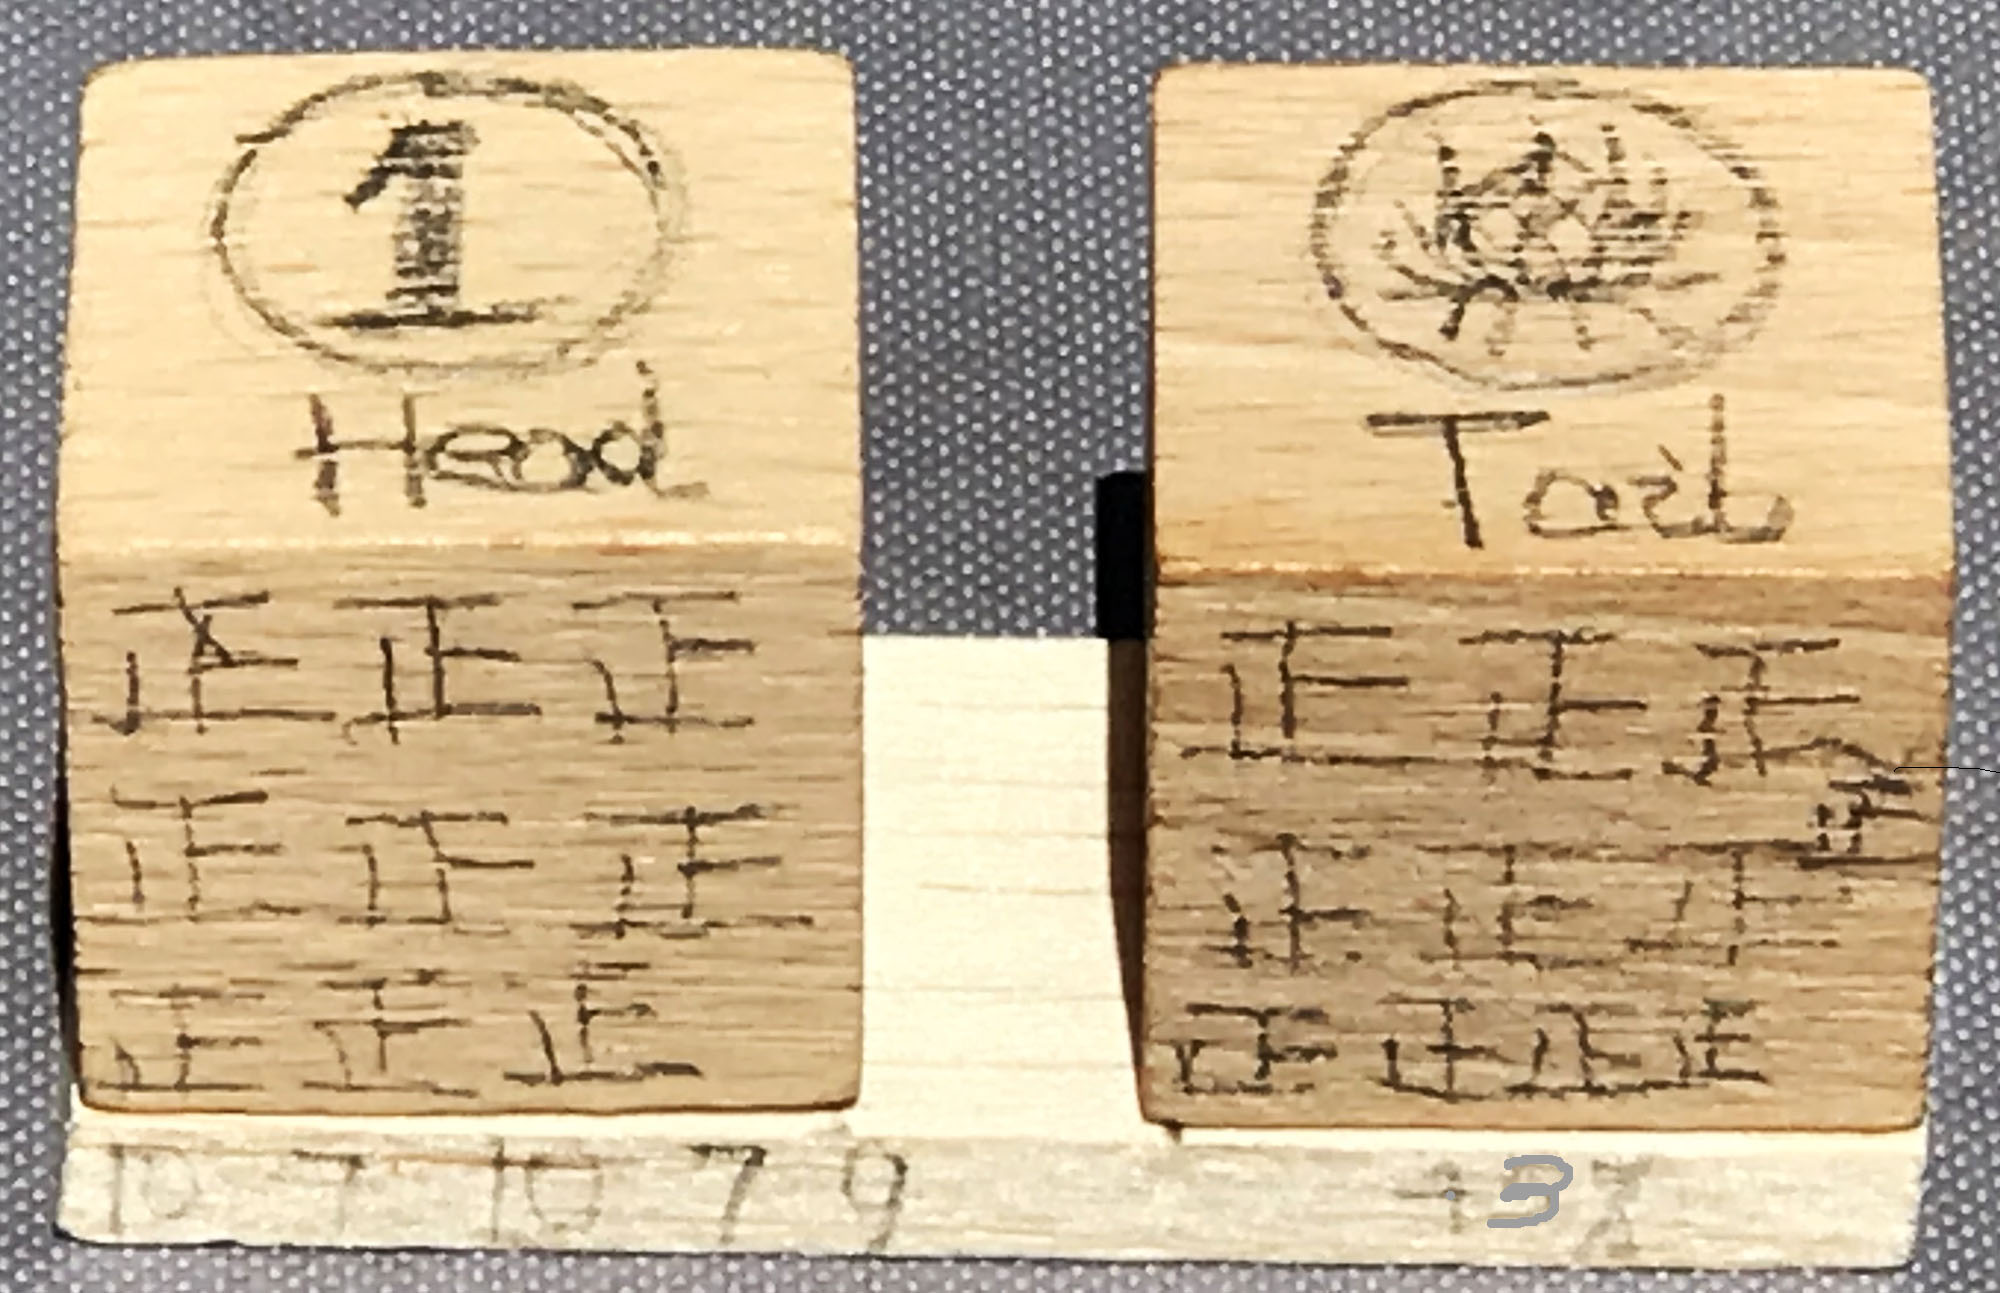 1
Head
正 正 正
正 正 正
正 正 正
Tail
正 正 正 正
正 正 正
正 正 正 正
10 7 10 7 9
3